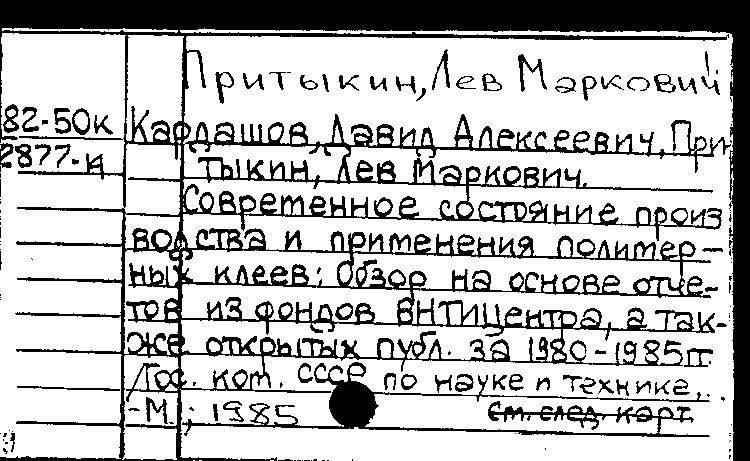 Притыкин, Лев Маркович
82-50к Кардашов, Давид Алексеевич, При
2877-и тыкин, Лев Маркович.
Современное состояние произ
водства и применения полимер-
ных клеев: Обзор на основе отче-
тов из фондов ВНТИЦентра, а так-
же открытых публ. за 1980-1985гг.
/Гос. ком. СССР по науке и технике,.
-М.; 1985 См. след. карт.